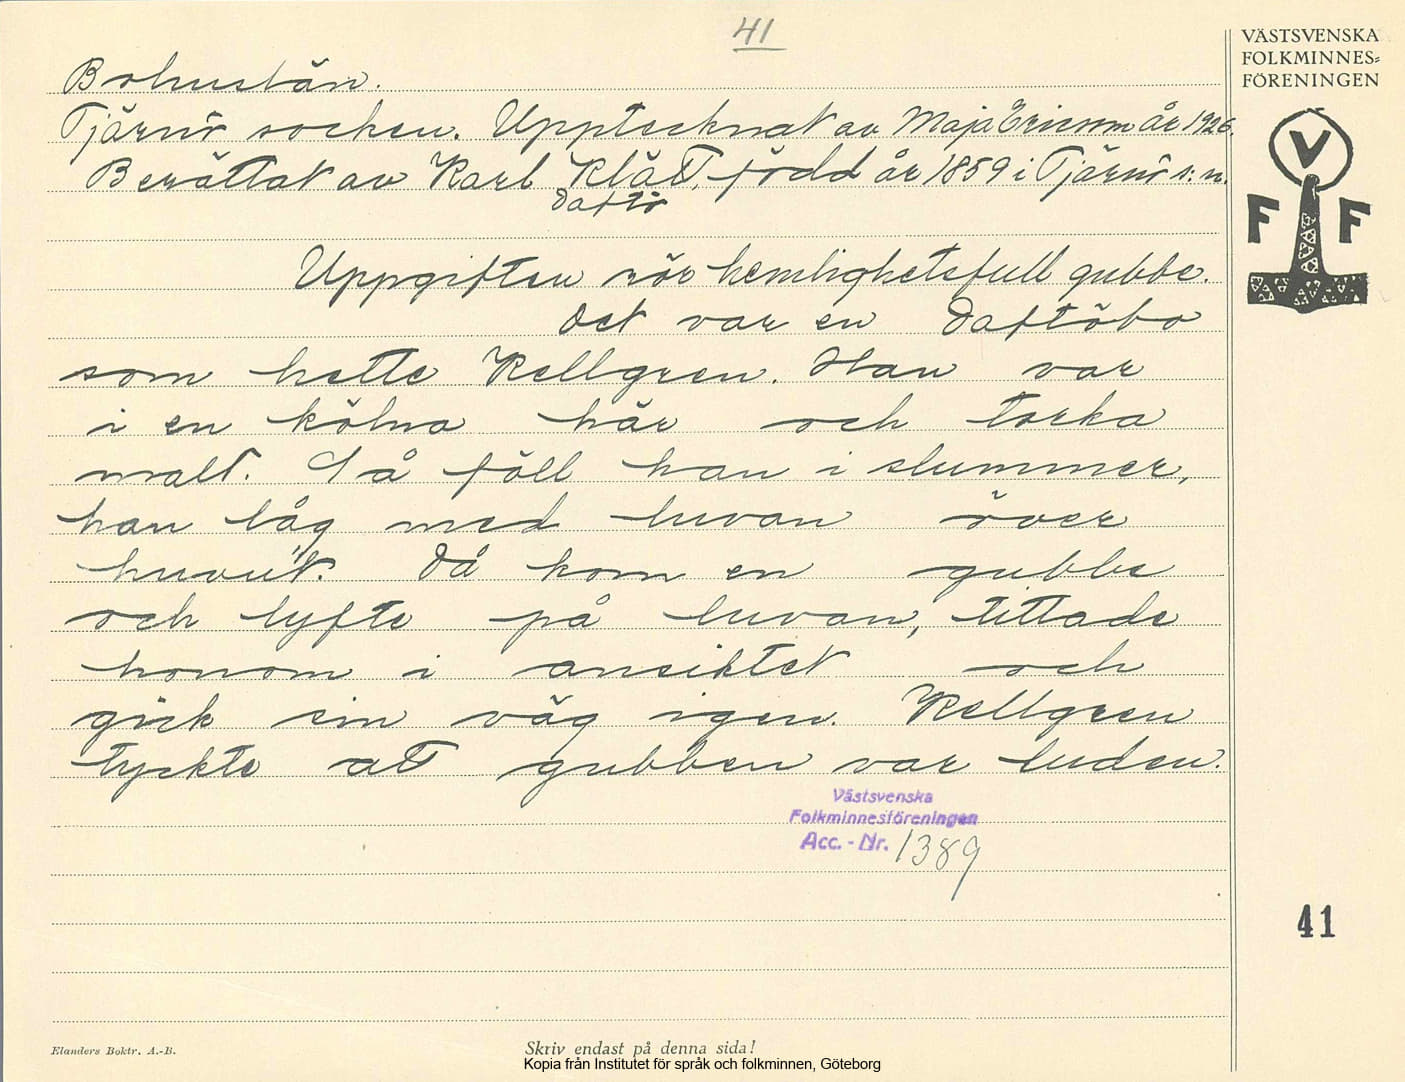 41
VÄSTSVENSKA
FOLKMINNES-
FÖRENINGEN
V
F F
Bohuslän.
Tjärnö socken. Upptecknat av Maja Ericson år 1926.
Berättat av Karl Klätt, född år 1859 i Tjärnö s:n.
Daftö
Uppgiften rör hemlighetsfull gubbe.
Det var en Daftöbo
som hette Kellgren. Han var
i en kölna här och torka
malt. Så föll han i slummer,
han låg med luvan över
huvu't. Då kom en gubbe
och lyfte på luvan, tittade
honom i ansiktet och
gick sin väg igen. Kellgren
tyckte att gubben var luden.
Västsvenska
Folkminnesföreningen
Acc. - Nr. 1389
41
Elanders Boktr. A.-B.
Skriv endast på denna sida!
Kopia från Institutet för språk och folkminnen, Göteborg